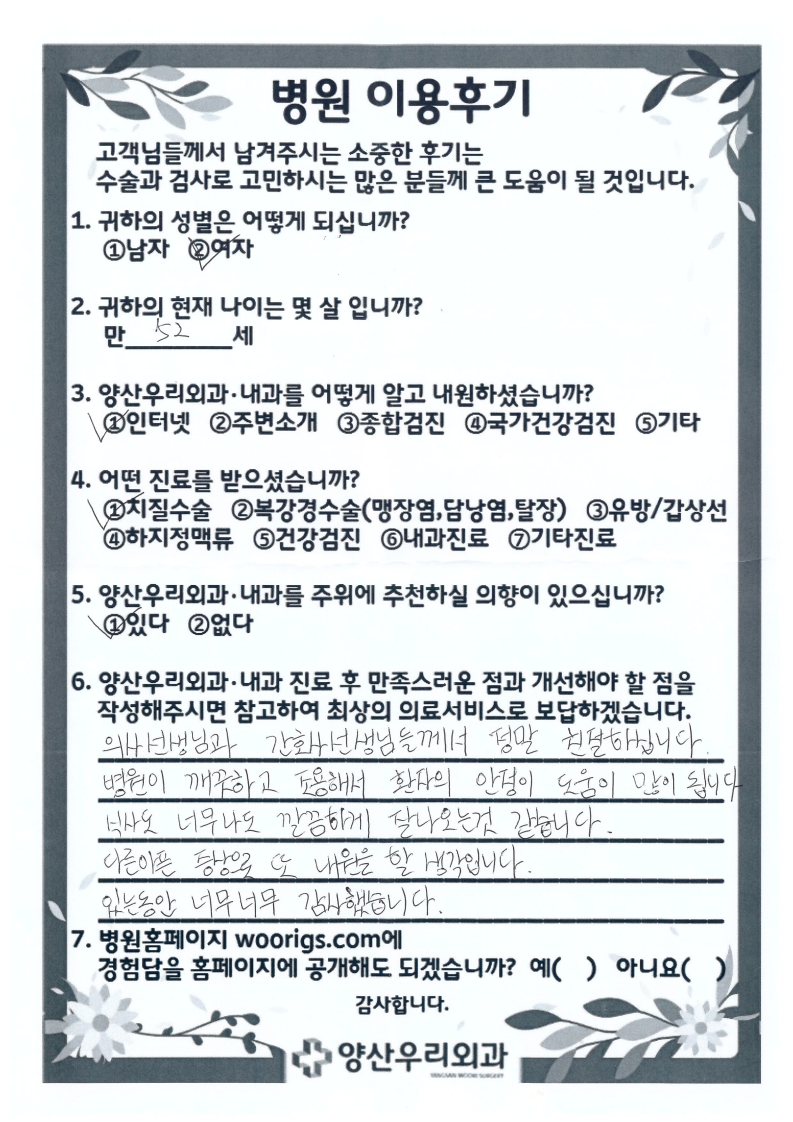 병원 이용후기
고객님들께서 남겨주시는 소중한 후기는
수술과 검사로 고민하시는 많은 분들께 큰 도움이 될 것입니다.
1. 귀하의 성별은 어떻게 되십니까?
①남자 ②여자
2. 귀하의 현재 나이는 몇 살 입니까?
만 52 세
3. 양산우리외과·내과를 어떻게 알고 내원하셨습니까?
①인터넷 ②주변소개 ③종합검진 ④국가건강검진 ⑤기타
4. 어떤 진료를 받으셨습니까?
①치질수술 ②복강경수술(맹장염,담낭염,탈장) ③유방/갑상선
④하지정맥류 ⑤건강검진 ⑥내과진료 ⑦기타진료
5. 양산우리외과·내과를 주위에 추천하실 의향이 있으십니까?
①있다 ②없다
6. 양산우리외과·내과 진료 후 만족스러운 점과 개선해야 할 점을
작성해주시면 참고하여 최상의 의료서비스로 보답하겠습니다.
의사선생님과 간호사선생님들께서 정말 친절하십니다.
병원이 깨끗하고 조용해서 환자의 안정이 도움이 많이 됩니다
식사도 너무나도 깔끔하게 잘나오는것 같습니다.
다른아픈 증상으로 또 내원을 할 생각입니다.
있는동안 너무너무 감사했습니다.
7. 병원홈페이지 woorigs.com에
경험담을 홈페이지에 공개해도 되겠습니까? 예( ) 아니요( )
감사합니다.
양산우리외과
YANGSAN WOORI SURGERY